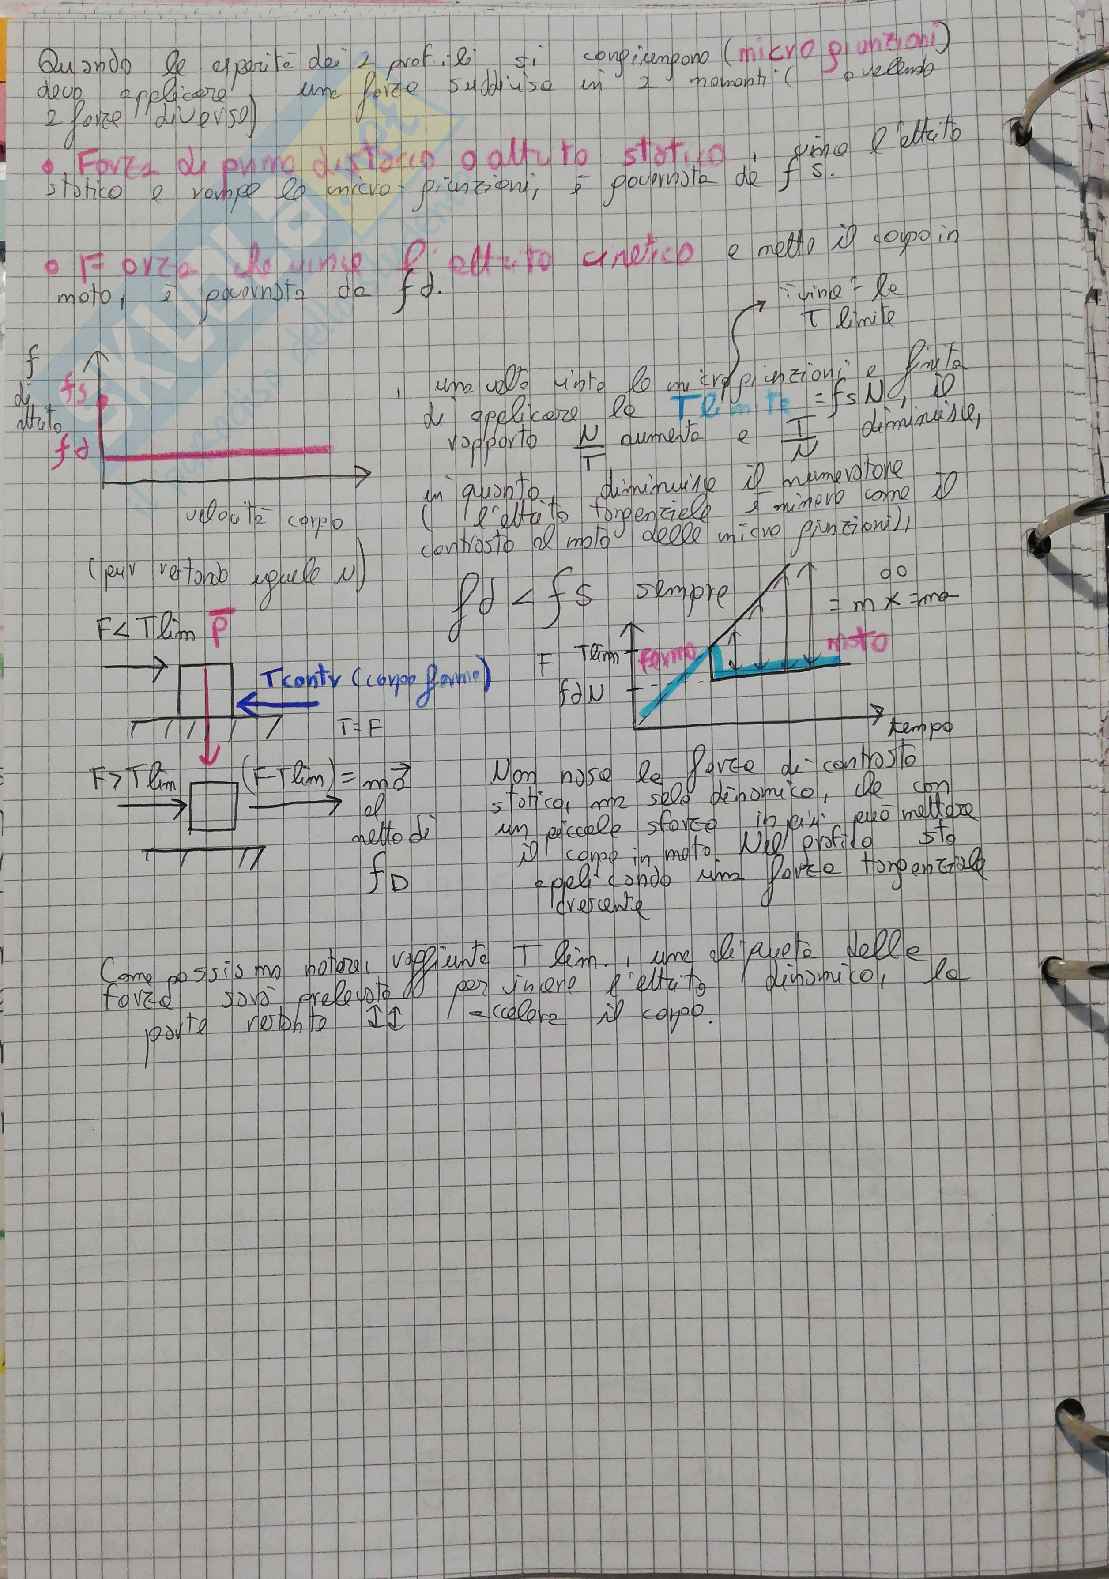 Quando le asperità dei 2 profili si congiungono (micro giunzioni)
devo applicare una forza suddivisa in 2 momenti ( o vedendo
2 forze diverse)
• Forza di primo distacco o attrito statico, vince l'attrito
statico e rompe le micro-giunzioni, è governata da fs.
• Forza che vince l'attrito cinetico e mette il corpo in
moto, è governata da fd.
vince la
T limite
f
di
attrito
fs
fd
velocità corpo
(pur restando uguale N)
, una volta vinte le micro giunzioni e finito
di applicare la T limite = fs N, il
rapporto N/T aumenta e T/N diminuisce,
in quanto diminuisce il numeratore
( l'attrito tangenziale è minore come il
contrasto al moto delle micro giunzioni),
fd < fs sempre
F < Tlim P
Tcontr (corpo fermo)
T = F
F > Tlim (F-Tlim) = ma
al
netto di
fD
F Tlim
fdN
fermo
moto
= ma
tempo
Non nasce la forza di contrasto
statico, ma solo dinamico, che con
un piccolo sforzo in più può mettere
il corpo in moto. Nel profilo sto
applicando una forza tangenziale
crescente
Come possiamo notare, raggiunta T lim., una aliquota delle
forze sarà prelevata per vincere l'attrito dinamico, la
parte restante ↕↕ accelera il corpo.